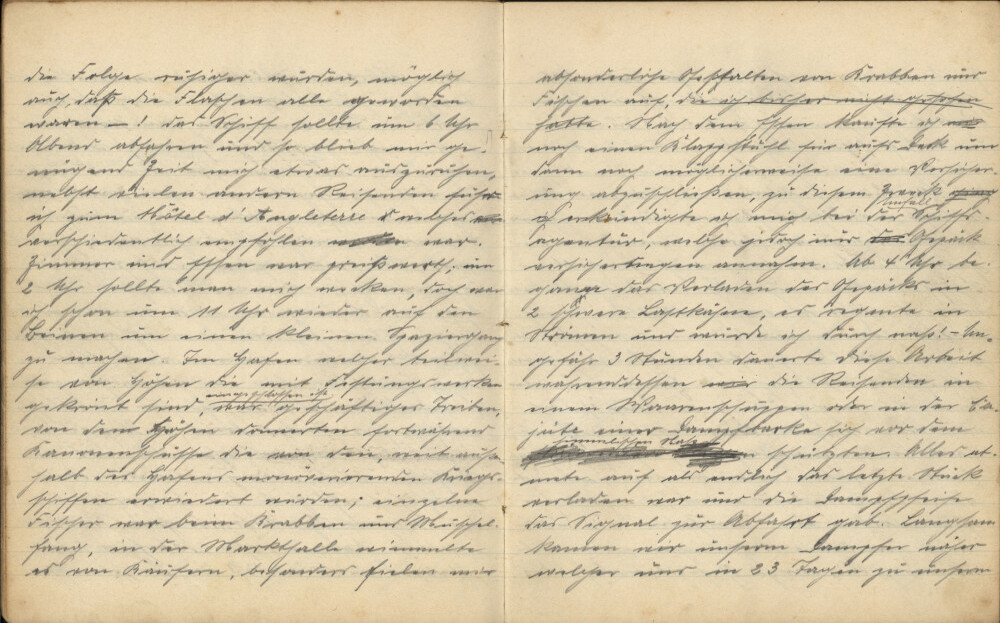 die Folge ruhiger wurden, möglich
auch, daß die Flaschen alle geworden
waren — ! das Schiff sollte um 6 Uhr
Abens abfahren und so blieb mir ge-
nügend Zeit mich etwas auszuruhen,
nebst vielen andern Reisenden fuhr
ich zum Hôtel d'Angleterre welches
verschiedentlich empfohlen war.
Zimmer und Essen war preißwerth; um
2 Uhr sollte man mich wecken, doch war
ich schon um 11 Uhr wieder auf den
Beinen um einen kleinen Spaziergang
zu machen. Im Hafen welcher teilwei-
se von Höhen die mit Festungswerken
gekrönt sind, eingeschlossen ist war geschäftiges Treiben,
von den Höhen donnerten fortwährend
Kanonenschüsse die von den, weit außer-
halb des Hafens manövrierenden Kriegs-
schiffen erwiedert wurden; einzelne
Fischer war beim Krabben und Muschel-
fang, in der Markthalle wimmelte
es von Käufern, besonders fielen mir
absonderliche Gestalten von Krabben und
Fischen auf, die ich bisher nicht gesehen
hatte. Nach dem Essen kaufte ich
noch einen Klappstuhl für aufs Deck um
dann noch möglicherweise eine Versicher-
ung abzuschließen, zu diesem Zweck
erkundigte ich mich bei der Schiffs-
agentur, welche jedoch nur Gepäck
versicherungen annahm. Ab 4 Uhr be-
gann das Verladen des Gepäcks in
2 schwere Lastkähne, es regnete in
Strömen und wurde ich durch naß! – Un-
gefähr 3 Stunden dauerte diese Arbeit
währenddessen die Reisenden in
einem Waarenschuppen oder in der Ca-
jüte einer Dampfbarke sich vor dem
himmlischen Naß schützten. Alles at-
mete auf als endlich das letzte Stück
verladen war und die Dampfpfeife
das Signal zur Abfahrt gab. Langsam
kamen wir unserm Dampfer näher
welcher uns in 23 Tagen zu unserm